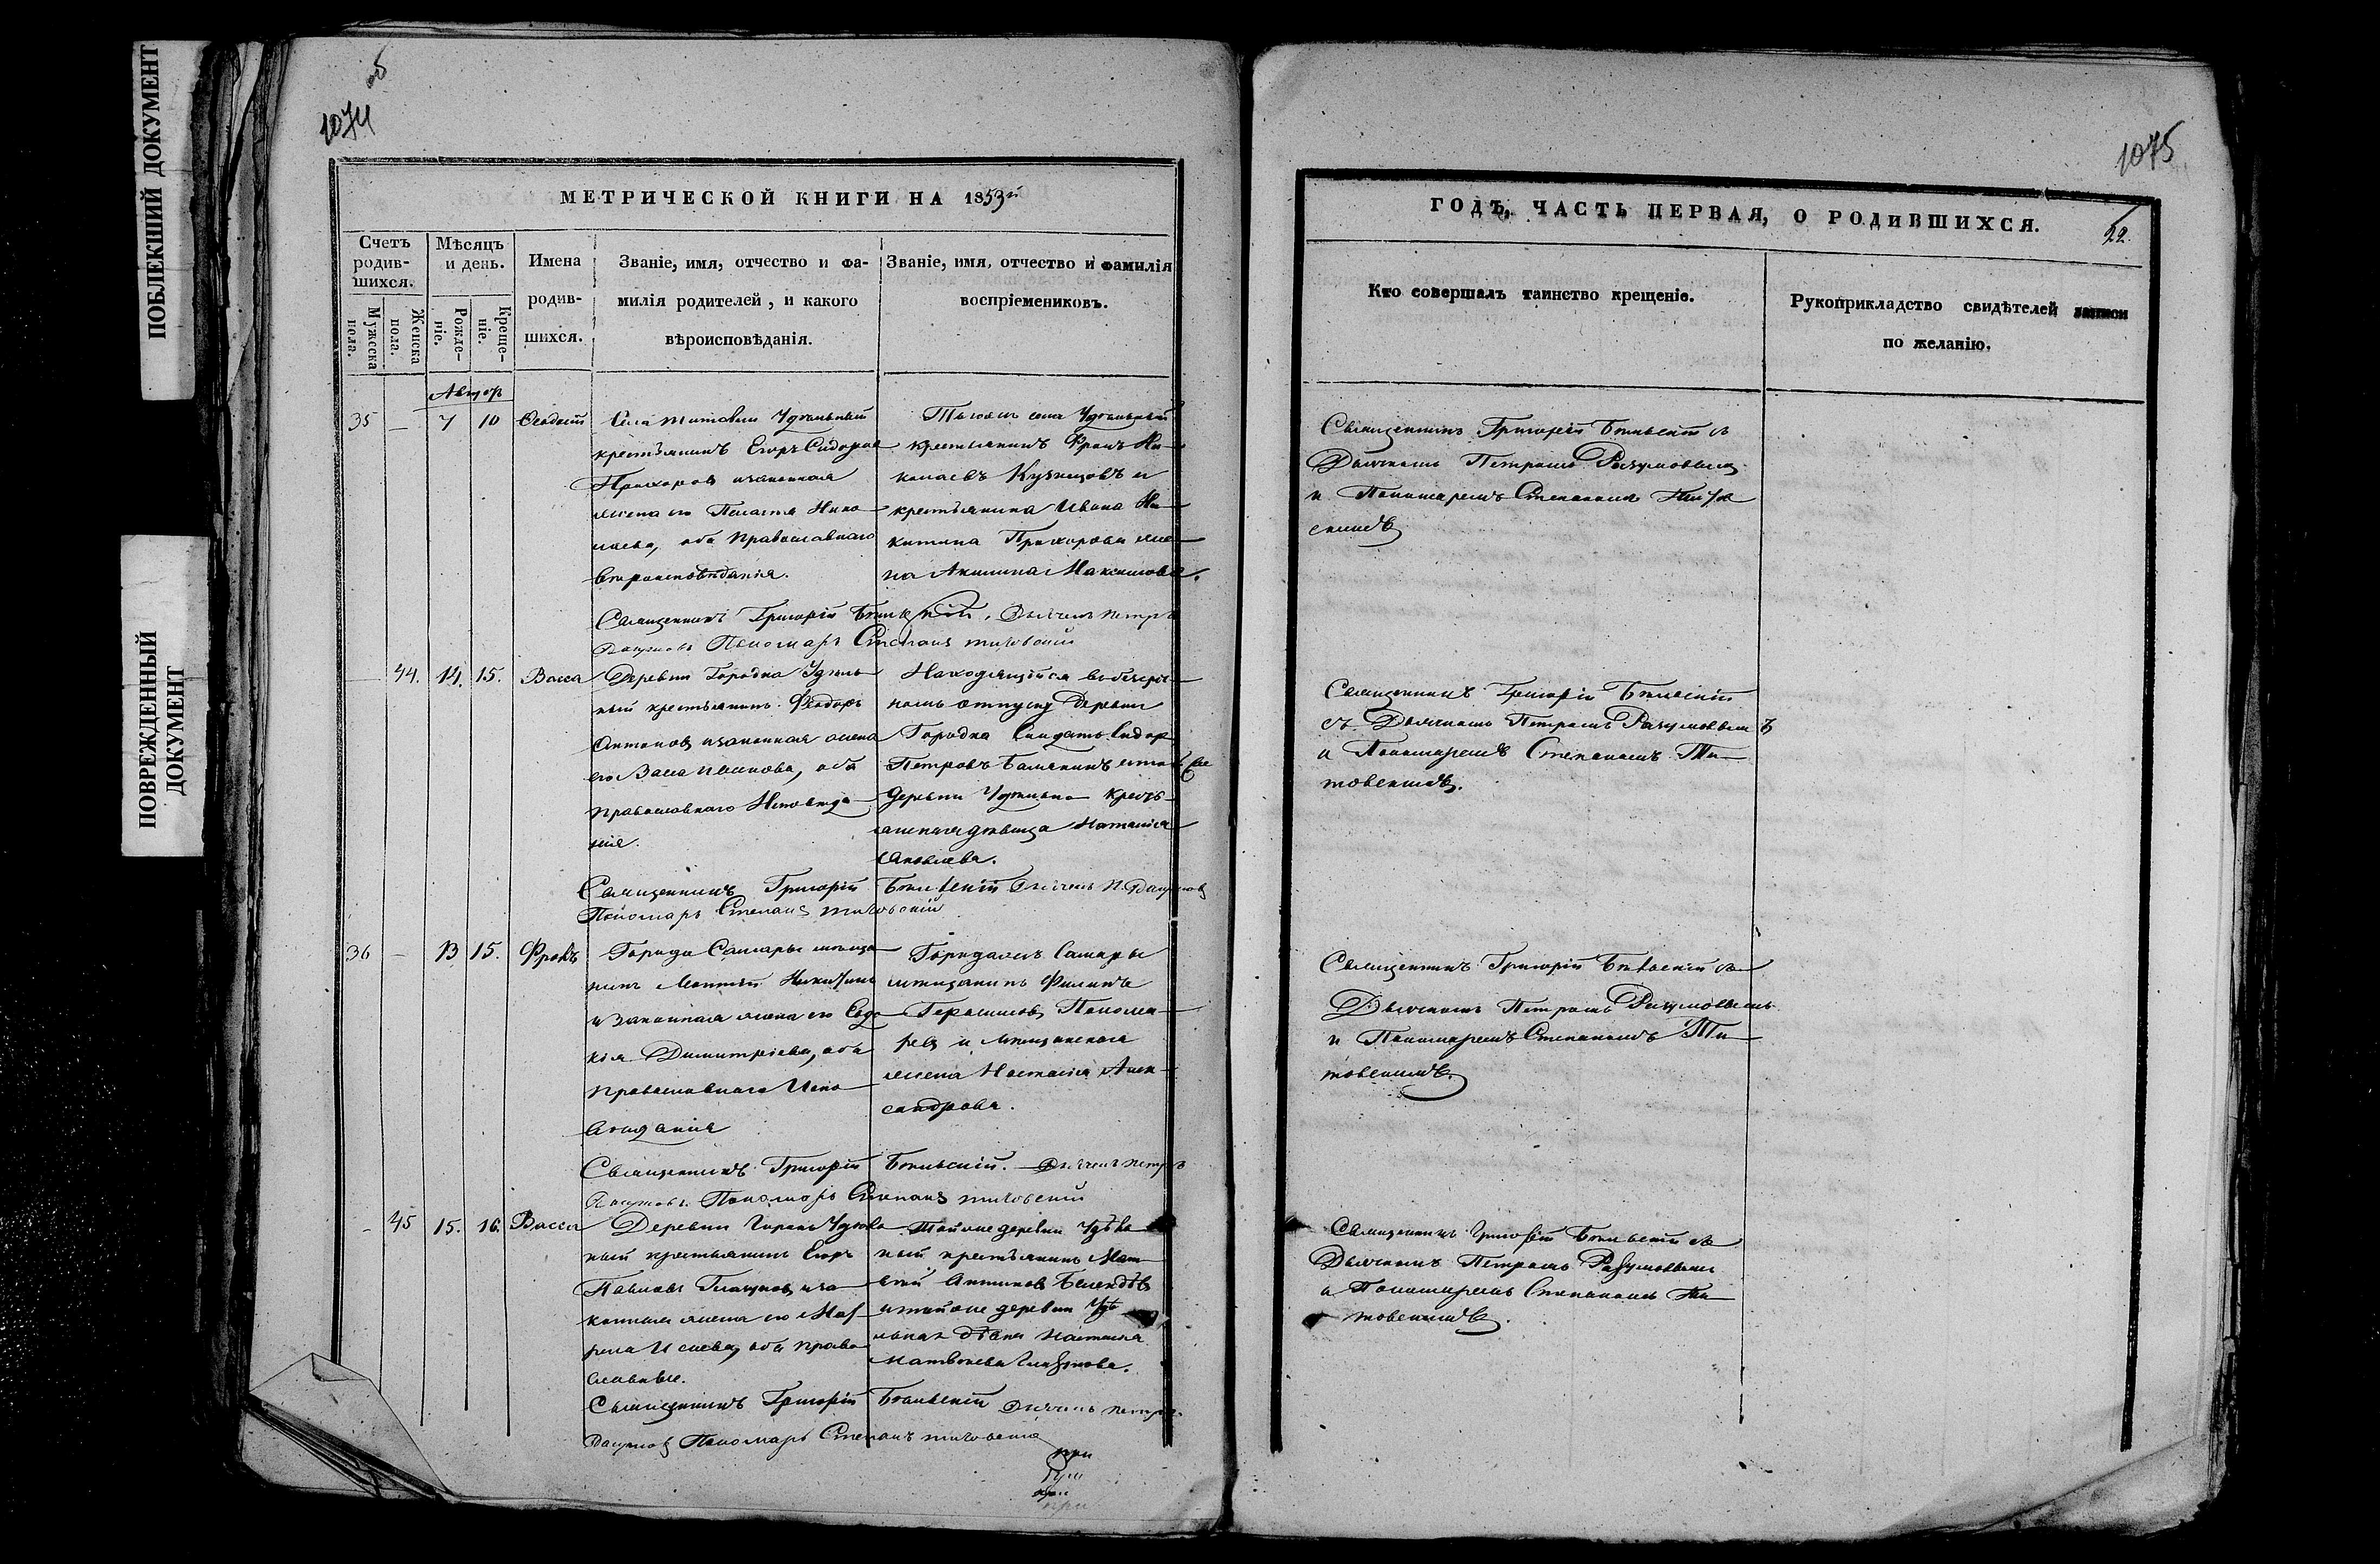 ПОБЛЕКШИЙ ДОКУМЕНТ
ПОВРЕЖДЕННЫЙ
ДОКУМЕНТ
об
1074
МЕТРИЧЕСКОЙ КНИГИ НА 1853й
Счетъ родив-шихся.
Мужеска пола.
Женска пола.
Мѣсяцъ и день.
Рожде-ніе.
Креще-ніе.
Имена родив-шихся.
Званіе, имя, отчество и фа-
милія родителей, и какого
вѣроисповѣданія.
Званіе, имя, отчество и фамилія
воспріемниковъ.
35 — 7 10
крестьянинъ Егоръ Сидоровъ
Прохоровъ и законная
жена его Пелагія Нико
лаева, оба православнаго
вѣроисповѣданія.
Тогожъ села Удѣльный
крестьянинъ Фролъ Ни-
колаевъ Кузнецовъ и
крестьянина Ивана Ни-
китина Прохорова же-
на Акилина Максимова.
Священникъ Григорій Дьячекъ Петръ
Пономарь Степанъ Титовскій
44. 14. 15. Васса
Деревни Городка Удѣль
ный крестьянинъ Феодоръ
Антоновъ и законная жена
его оба
православнаго Исповѣда
нія.
Находящійся въ безсроч
номъ отпуску Деревни
Городка Солдатъ Сидоръ
Петровъ
деревни Удѣльна Кресть-
янская дѣвица Наталія
Яковлева.
Священникъ Григорій Дьячекъ П.
Пономарь Степанъ Титовскій
36 — 13 15. Фролъ
Города Самары мѣща
нинъ
и законная жена его Евдо
кія Димитріева, оба
православнаго Испо
вѣданія
Города Самары
мѣщанинъ Филипъ
Герасимовъ Понома-
ревъ и мѣщанская
жена Настасія Алек-
сандрова.
Священникъ Григорій Дьячекъ Петръ
Пономарь Степанъ Титовскій
- 45 15. 16. Васса
Деревни Удѣль
ный крестьянинъ Егоръ
Павловъ и за
конная жена его Мав
ра оба право
славные.
Тойже деревни Удѣль
ный крестьянинъ Мат
вѣй Антиповъ
и тойже деревни Удѣ
льная дѣвка Настасья
Матвѣева
Священникъ Григорій Дьячекъ Петръ
Пономарь Степанъ Титовскій
при
при
при
1075
ГОДЪ, ЧАСТЬ ПЕРВАЯ, О РОДИВШИХСЯ.
22.
Кто совершалъ таинство крещеніе.
Рукоприкладство свидѣтелей записи
по желанію.
Священникъ Григорій съ
Дьячкомъ Петромъ Разумовымъ
и Пономаремъ Степаномъ Тито
вскимъ
Священникъ Григорій
съ Дьячкомъ Петромъ Разумовымъ
и Пономаремъ Степаномъ Ти-
товскимъ.
Священникъ Григорій съ
Дьячкомъ Петромъ Разумовымъ
и Пономаремъ Степаномъ Ти-
товскимъ.
Священникъ Григорій съ
Дьячкомъ Петромъ Разумовымъ
и Пономаремъ Степаномъ Ти-
товскимъ.